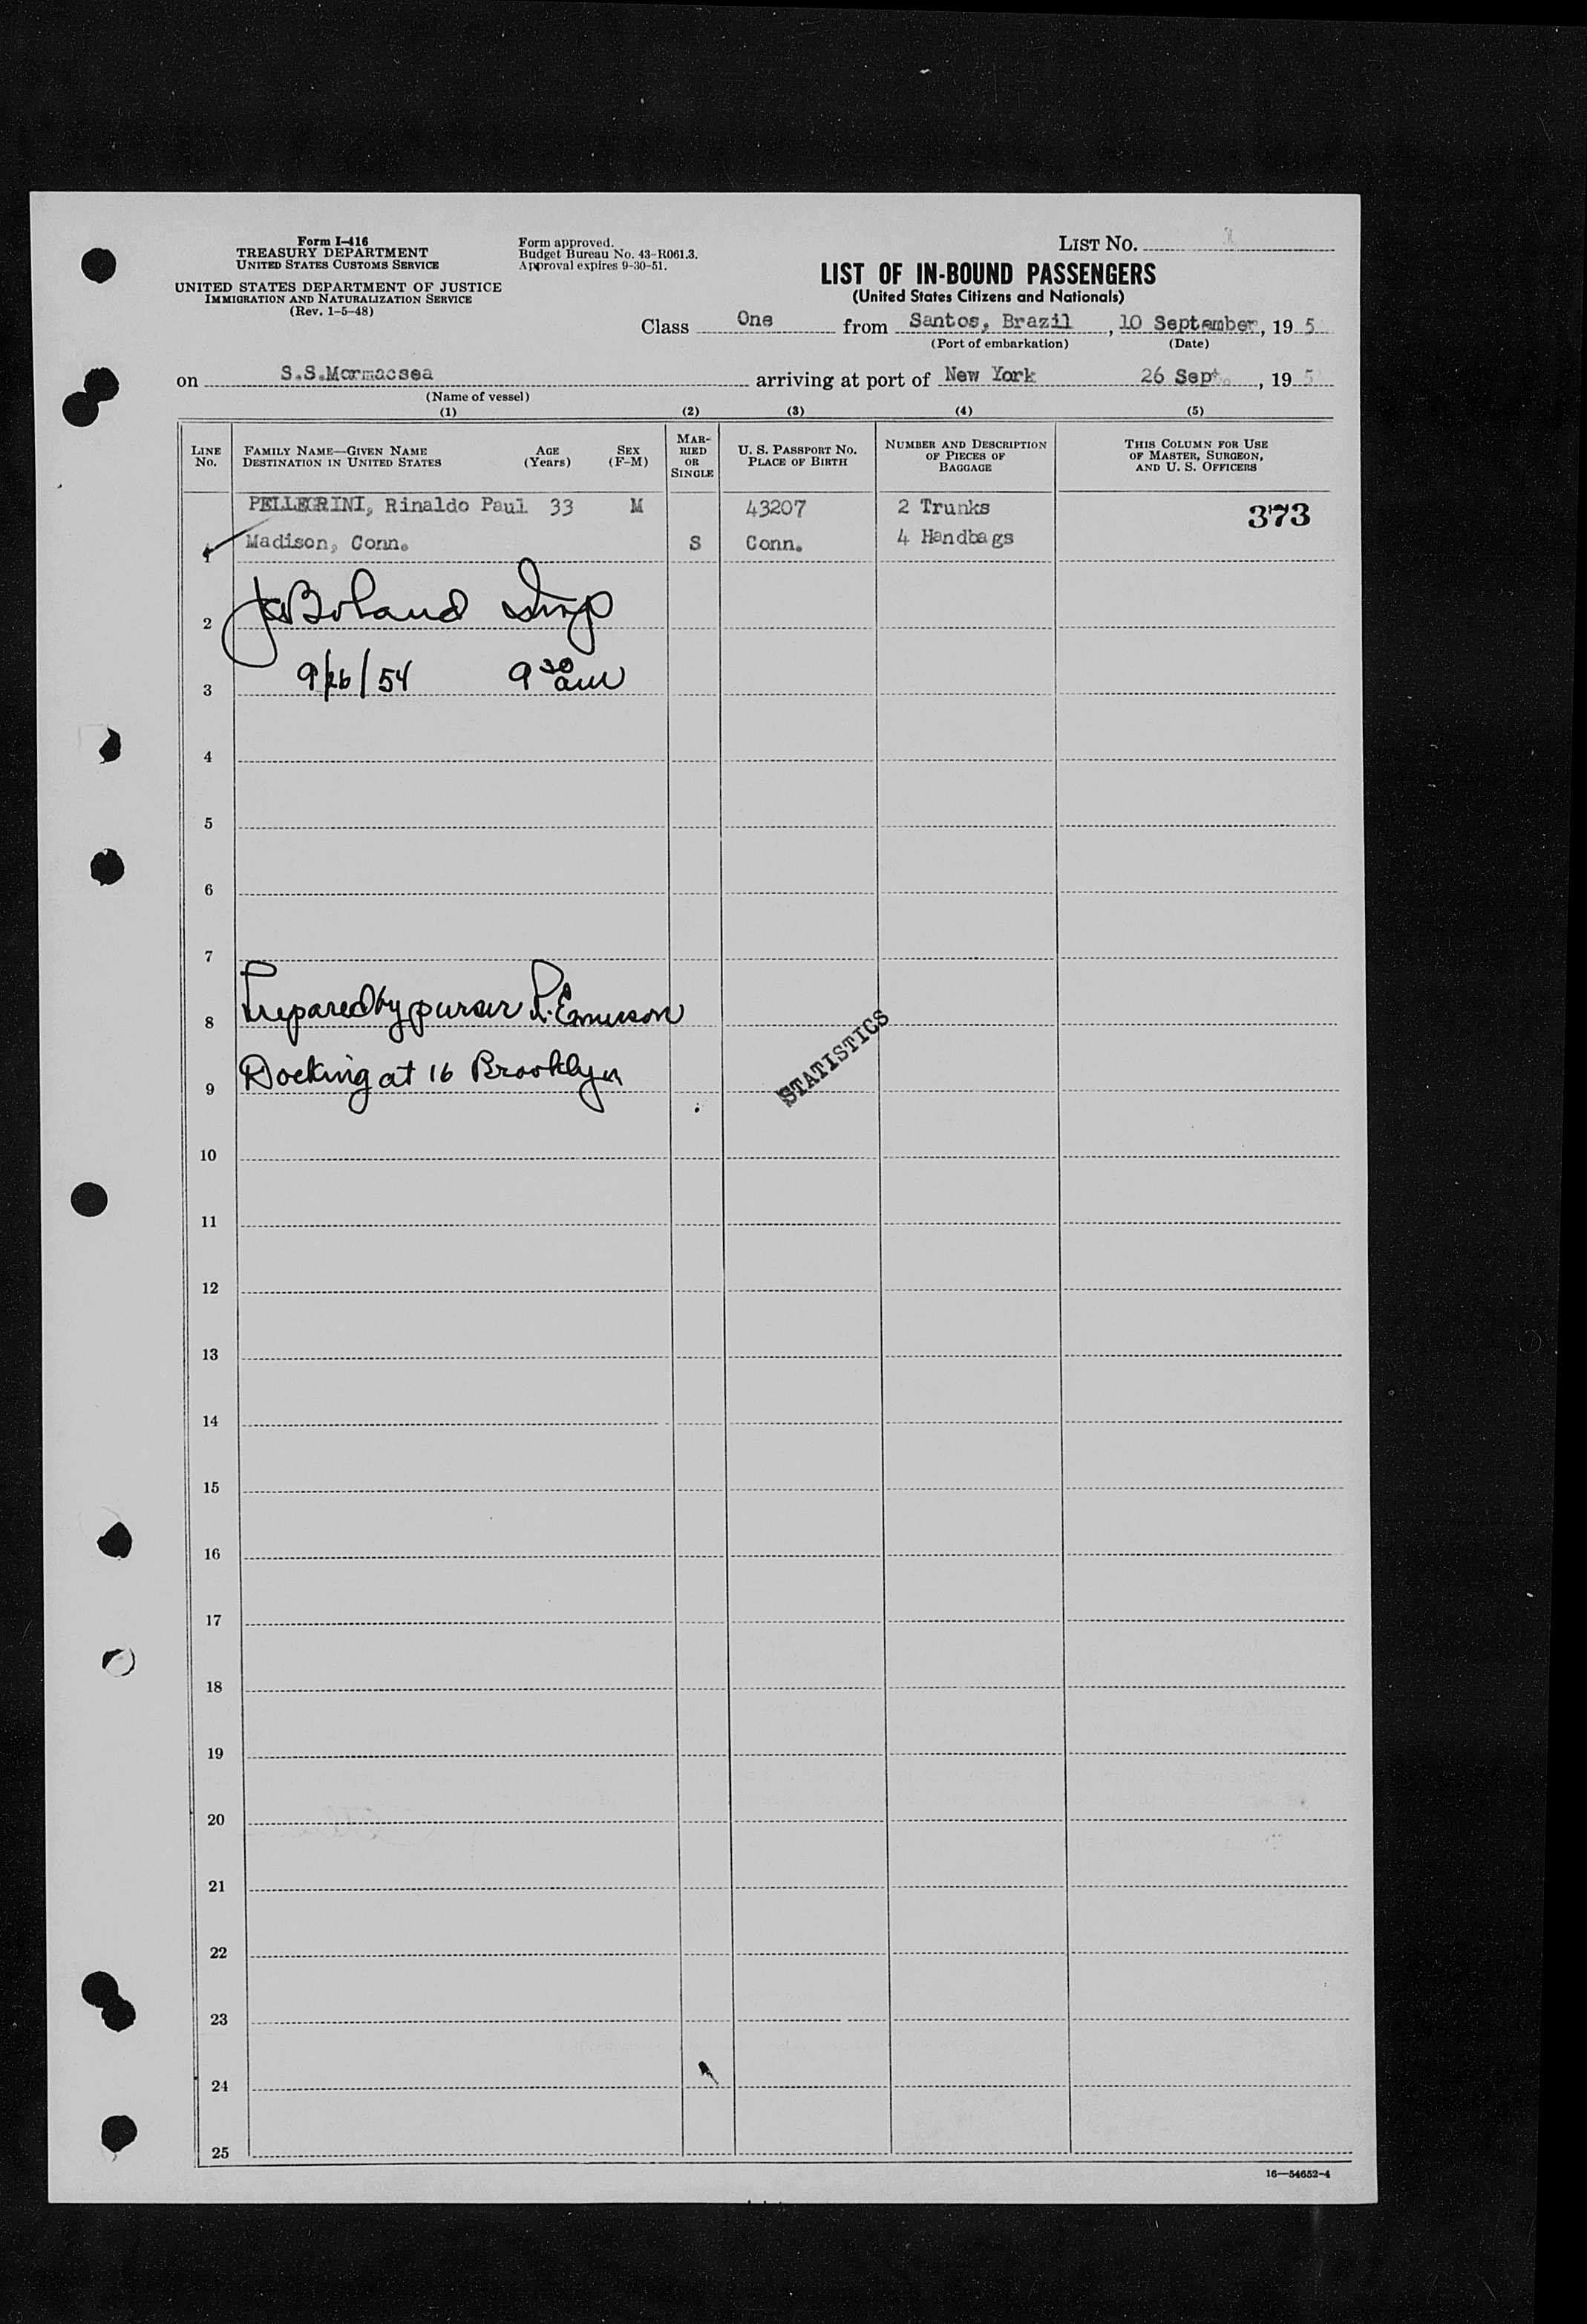 Form I-416
TREASURY DEPARTMENT
UNITED STATES CUSTOMS SERVICE
UNITED STATES DEPARTMENT OF JUSTICE
IMMIGRATION AND NATURALIZATION SERVICE
(Rev. 1-5-48)
Form approved.
Budget Bureau No. 43-R061.3.
Approval expires 9-30-51.
LIST NO.
LIST OF IN-BOUND PASSENGERS
(United States Citizens and Nationals)
Class One from Santos, Brazil, 10 September, 19 5
(Port of embarkation) (Date)
on S.S.Mormacsea arriving at port of New York 26 Sept., 19 5
(Name of vessel)
(1) (2) (3) (4) (5)
LINE No. FAMILY NAME—GIVEN NAME DESTINATION IN UNITED STATES AGE (Years) SEX (F-M) MARRIED OR SINGLE U. S. PASSPORT NO. PLACE OF BIRTH NUMBER AND DESCRIPTION OF PIECES OF BAGGAGE THIS COLUMN FOR USE OF MASTER, SURGEON, AND U. S. OFFICERS
PELLEGRINI, Rinaldo Paul 33 M 43207 2 Trunks 373
1 Madison, Conn. S Conn. 4 Handbags
2 Boland Insp
3 9/26/54 9 30 am
4
5
6
7
8 Prepared by purser R. Emerson
9 Docking at 16 Brooklyn STATISTICS
10
11
12
13
14
15
16
17
18
19
20
21
22
23
24
25
16—54652-4